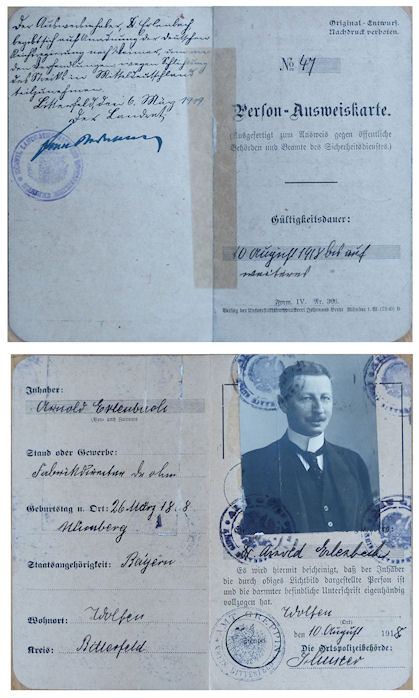 Der Ausweisinhaber, Dr Erlenbach
begibt sich auf Einladung der Deutschen
Reichsregierung nach Weimar, um an
den Verhandlungen wegen Schlichtung
des Streiks in Mitteldeutschland
teilzunehmen.
Bitterfeld, den 6. März 1919
Der Landrat
Original-Entwurf.
Nachdruck verboten.
No 47
Person-Ausweiskarte.
(Ausgefertigt zum Ausweis gegen öffentliche
Behörden und Beamte des Sicherheitsdienstes.)
Gültigkeitsdauer:
10 August 1918 bis auf
weiteres
Form. IV. Nr.
Inhaber:
Arnold Erlenbach
(Vor- und Zuname)
Stand oder Gewerbe:
Fabrikdirektor Dr
Geburtstag u. Ort: 26 März 18
Nürnberg
Staatsangehörigkeit: Bayern
Wohnort: Wolfen
Kreis: Bitterfeld
Dr. Arnold Erlenbach
Es wird hiermit bescheinigt, daß der Inhaber
die durch obiges Lichtbild dargestellte Person ist
und die darunter befindliche Unterschrift eigenhändig
vollzogen hat.
Wolfen
(Ort)
den 10 August 1918
Die Ortspolizeibehörde: